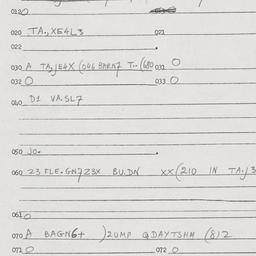 012 O
020 TA.,XE4L3 021
022 .
030 A TA,JE4X (046 BMRN7 T.. (680 031 O
032 O 033 O
040 D1 VA.SL7
050 JO.
060 23 FLE.GN7Z3X BU.DN XX(210 IN TA.J3
061 O
070 A BAGN6+ )2UMP @DAYTSHM (812
071 O 072 O